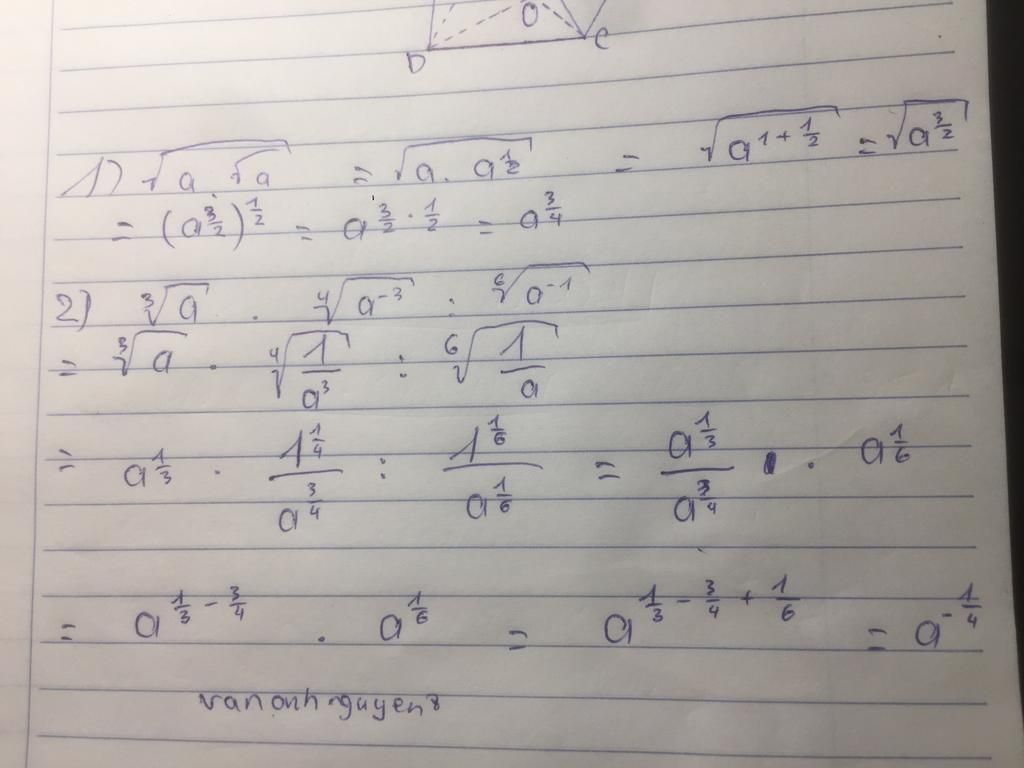 O
D C
1) √(a.√a) = √(a.a^(1/2)) = √(a^(1+1/2)) = √(a^(3/2))
= (a^(3/2))^(1/2) = a^(3/2 · 1/2) = a^(3/4)
2) ∛a . ∜(a^(-3)) : ⁶√(a^(-1))
= ∛a . ∜(1/a^3) : ⁶√(1/a)
= a^(1/3) . 1^(1/4)/a^(3/4) : 1^(1/6)/a^(1/6) = a^(1/3)/a^(3/4) . a^(1/6)
= a^(1/3 - 3/4) . a^(1/6) = a^(1/3 - 3/4 + 1/6) = a^(-1/4)
vananhnguyen8